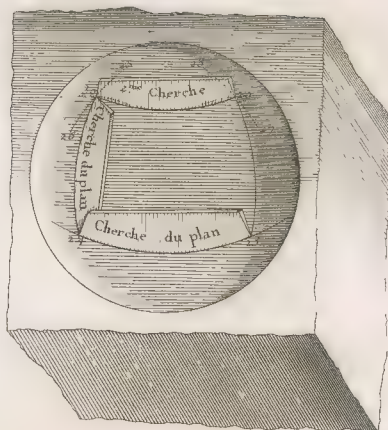 2.me Cherche
Cherche du plan
Cherche du plan